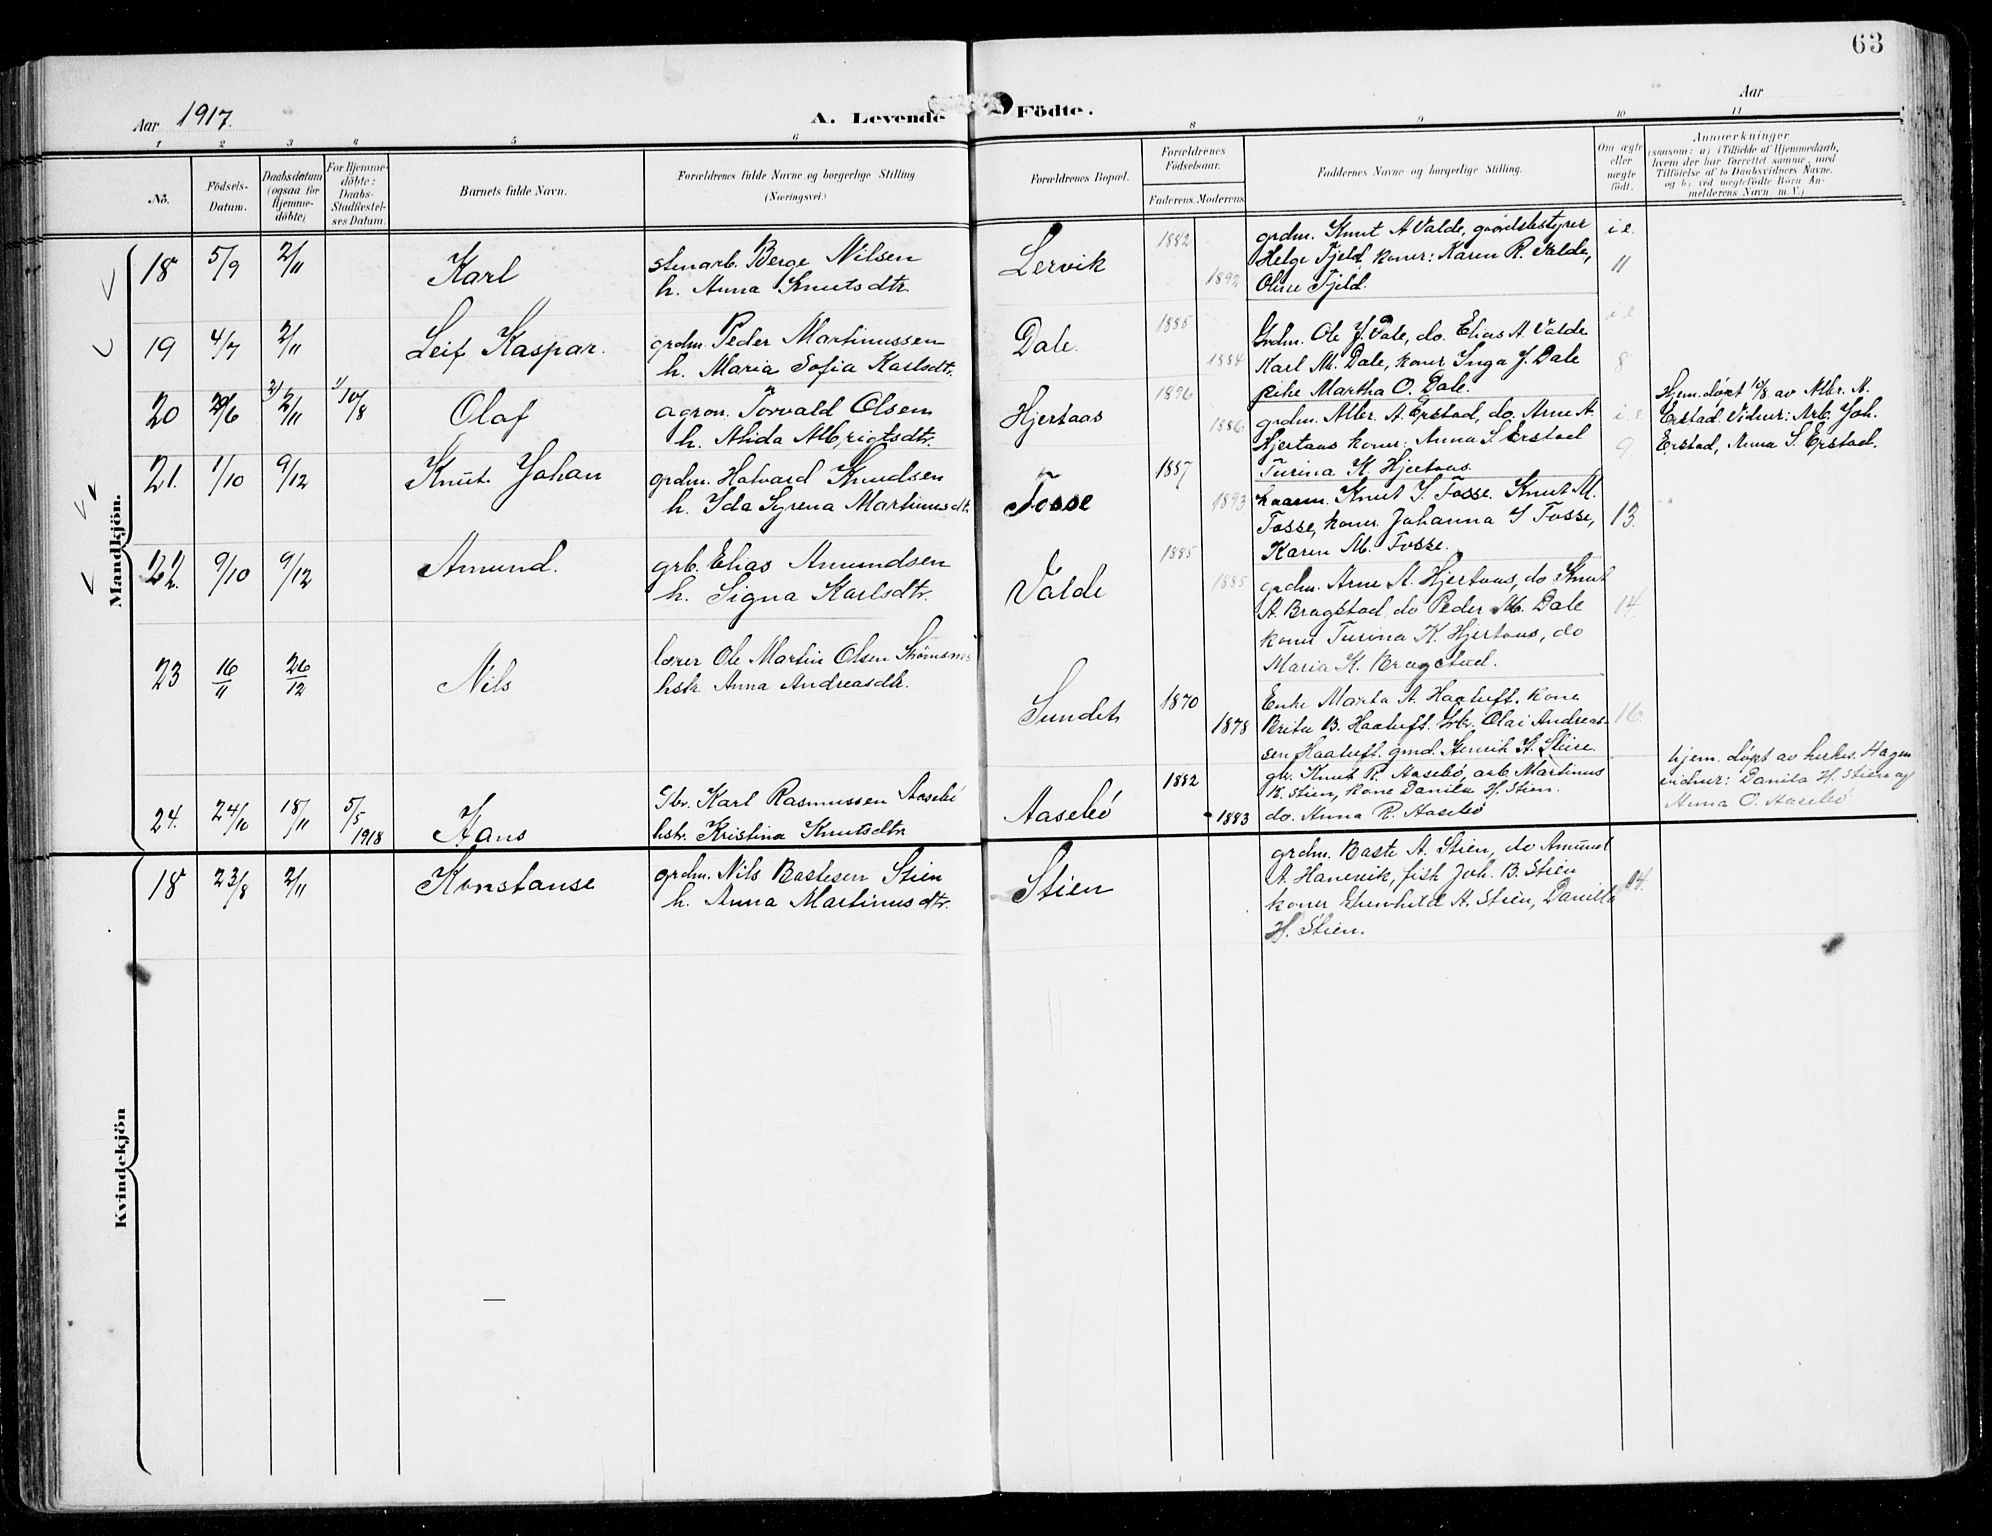 63
Aar 1917.
A. Levende Födte.
Aar
1 2 3 4 5 6 8 9 10 11
No.
Födsels-
Datum.
Daabsdatum
(ogsaa for
Hjemme-
döbte)
For Hjemme-
döbte:
Daabs-
Stadfæstel-
ses Datum.
Barnets fulde Navn.
Forældrenes fulde Navne og borgerlige Stilling
(Næringsvei.)
Forældrenes Bopæl.
Forældrenes
Födselsaar.
Faderens. Moderens.
Faddernes Navne og borgerlige Stilling.
Om ægte
eller
uægte
født.
Anmærkninger
(saasom: a) i Tilfælde af Hjemmedaab,
hvem der har forrettet samme, med
Tilföielse af to Daabsvidners Navne.
og b) ved uægtefödte Börn An-
melderens Navn m. V.)
Mandkjön.
18 5/9 2/11 Karl
stenarb. Berge Nilsen
h. Anna Knutsdtr.
Lervik
1882
1892
grdm. Knut A Valde, gaardsbestyrer
Helge Fjeld, koner: Karen R. Valde,
Oline Fjeld.
i e.
11
19 4/7 2/11 Leif Kaspar.
grdm. Peder Martinussen
h. Maria Sofia Karlsdtr.
Dale.
1885
1884
Grdm. Ole J. Dale, do. Elias A. Valde
Karl M. Dale, koner Inga J. Dale
pike Martha O. Dale.
i e
8
20 29/6 2/11 10/8 Olaf
agron. Torvald Olsen
h. Alida Albrigtsdtr.
Hjertaas
1896
1886
grdm. Albr. A. Erstad, do. Arne A.
Hjertaas koner: Anna S. Erstad
Turina K. Hjertaas.
i e
9
Hjem. døpt 10/8 av Albr. A.
Erstad. Vidner: Arb. Joh.
Erstad, Anna S. Erstad.
21. 1/10 9/12 Knut Johan
grdm. Halvard Knudsen
h. Ida Syrena Martinusdtr.
Fosse
1887
1893
Knut I. Fosse. Knut M.
Fosse, koner Johanna I Fosse,
Karen M. Fosse.
13.
22. 9/10 9/12 Amund.
grb. Elias Amundsen
h. Signa Karlsdtr.
Valde
1885
1885
grdm. Arne A. Hjertaas, do Knut
A. Bragstad, do Peder M. Dale
koner Turina K. Hjertaas, do
Maria K. Bragstad.
14.
23 16/11 26/12 Nils
lærer Ole Martin Olsen Strømsnes
hstr. Anna Andreasdtr.
Sundet
1870
1878
Enke Marta A. Haatuft. kone
Brita B. Haatuft. Olai Andreas-
sen Haatuft. gmd. Henrik H. Steire.
16.
24. 24/10 18/11 5/5 1918 Hans
Gbr. Karl Rasmussen Aasebö
hstr. Kristina Knutsdtr
Aasebö
1882
1883
gbr. Knut R. Aasebö, arb. Martinus
K. Stien, kone Danila H. Stien.
do. Anna R. Aasebö
hjem. døpt av Hagen
vidner: Danila H. Stien og
Anna O. Aasebö
Kvindekjön
18 23/8 2/11 Konstanse
grdm. Nils Bastesen Stien
h. Anna Martinusdtr.
Stien
grdm. Baste A. Stien, do Amund
A. Hanevik, fisk Joh. B. Stien
koner A. Stien, Danilla
H. Stien.
14.